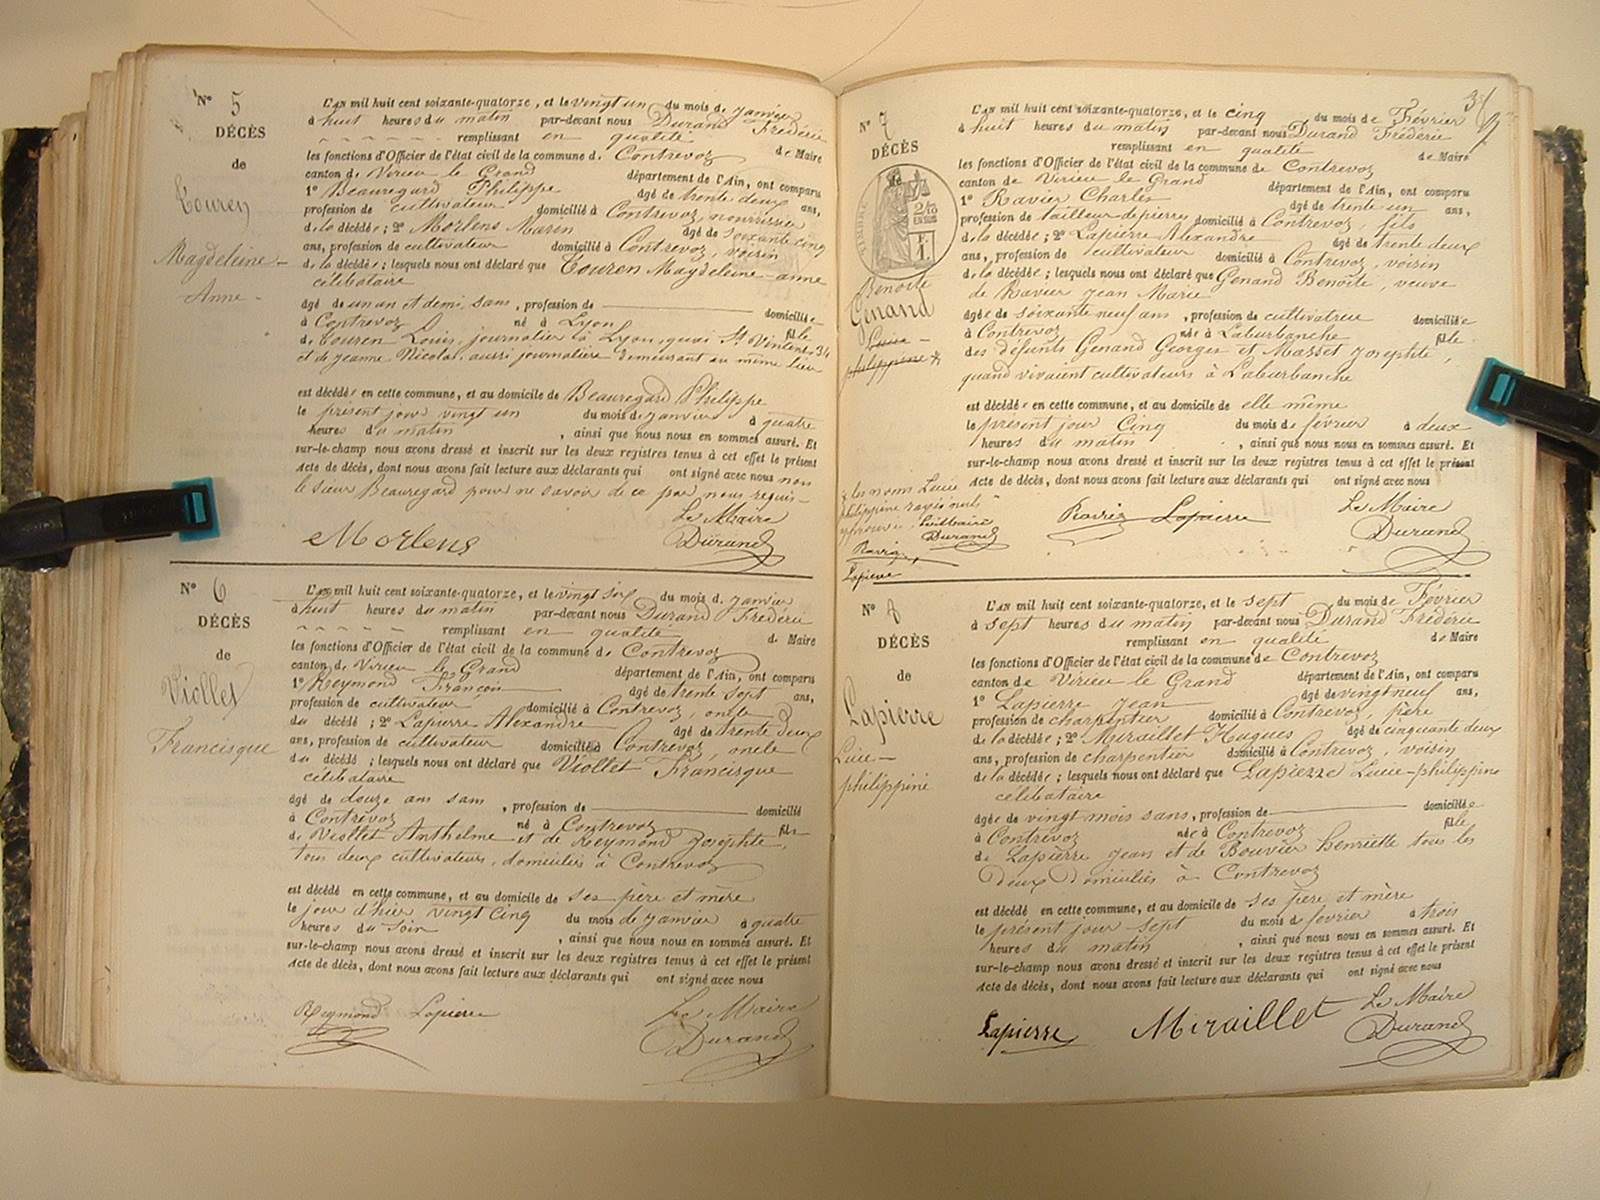 N° 5
DÉCÈS
de
Couren
Magdeleine-
Anne-
L'an mil huit cent soixante-quatorze, et le vingt un du mois de Janvier
à huit heures du matin par-devant nous Durand Frédéric
remplissant en qualité de Maire
les fonctions d'Officier de l'état civil de la commune de Contrevoz
canton de Virieu le Grand département de l'Ain, ont comparu
1° Beauregard Philippe âgé de trente deux ans,
profession de cultivateur domicilié à Contrevoz, nourricier
de la décédée; 2° Morlens Marin âgé de soixante cinq
ans, profession de cultivateur domicilié à Contrevoz, voisin
de la décédée; lesquels nous ont déclaré que Couren Magdeleine-anne
célibataire
âgé de un an et demi sans, profession de domiciliée
à Contrevoz né à Lyon fille
de Couren Louis, journalier à Lyon, quai St Vincent 34
et de Jeanne Nicolas aussi journalière demeurant au même lieu
est décédée en cette commune, et au domicile de Beauregard Philippe
le présent jour vingt un du mois de janvier à quatre
heures du matin, ainsi que nous nous en sommes assuré. Et
sur-le-champ nous avons dressé et inscrit sur les deux registres tenus à cet effet le présent
acte de décès, dont nous avons fait lecture aux déclarants qui ont signé avec nous non
le sieur Beauregard pour ne savoir de ce par nous requis-
Le Maire
Morlens Durand
N° 6
DÉCÈS
de
Viollet
Francisque
L'an mil huit cent soixante-quatorze, et le vingt six du mois de janvier
à huit heures du matin par-devant nous Durand Frédéric
remplissant en qualité de Maire
les fonctions d'Officier de l'état civil de la commune de Contrevoz
canton de Virieu le Grand département de l'Ain, ont comparu
1° Reymond François âgé de trente sept ans,
profession de cultivateur domicilié à Contrevoz, oncle
du décédé; 2° Lapierre Alexandre âgé de trente deux
ans, profession de cultivateur domicilié à Contrevoz, oncle
du décédé; lesquels nous ont déclaré que Viollet Francisque
célibataire
âgé de douze ans sans, profession de domicilié
à Contrevoz né à Contrevoz fils
de Viollet Anthelme et de Reymond Josephte,
tous deux cultivateurs, domiciliés à Contrevoz
est décédé en cette commune, et au domicile de ses père et mère
le jour d'hier vingt cinq du mois de janvier à quatre
heures du soir, ainsi que nous nous en sommes assuré. Et
sur-le-champ nous avons dressé et inscrit sur les deux registres tenus à cet effet le présent
acte de décès, dont nous avons fait lecture aux déclarants qui ont signé avec nous
Le Maire
Reymond Lapierre Durand
N° 7
DÉCÈS
TIMBRE
Benoîte
Génand
Lucie-
philippine
L'an mil huit cent soixante-quatorze, et le cinq du mois de Février
à huit heures du matin par-devant nous Durand Frédéric
remplissant en qualité de Maire
les fonctions d'Officier de l'état civil de la commune de Contrevoz
canton de Virieu le Grand département de l'Ain, ont comparu
1° Ravier Charles âgé de trente un ans,
profession de tailleur de pierres domicilié à Contrevoz, fils
de la décédée; 2° Lapierre Alexandre âgé de trente deux
ans, profession de cultivateur domicilié à Contrevoz, voisin
de la décédée; lesquels nous ont déclaré que Génand Benoîte, veuve
de Ravier Jean Marie
âgée de soixante neuf ans, profession de cultivatrice domiciliée
à Contrevoz née à Laburbanche fille
des défunts Genand Georges et Masset Josephte,
quand vivaient cultivateurs à Laburbanche
est décédée en cette commune, et au domicile de elle même
le présent jour Cinq du mois de février à deux
heures du matin, ainsi que nous nous en sommes assuré. Et
sur-le-champ nous avons dressé et inscrit sur les deux registres tenus à cet effet le présent
acte de décès, dont nous avons fait lecture aux déclarants qui ont signé avec nous
les noms Lucie
philippine rayés nuls
Le Maire
Durand
Lapierre
Ravier Lapierre Le Maire
Durand
N° 8
DÉCÈS
de
Lapierre
Lucie-
philippine
L'an mil huit cent soixante-quatorze, et le sept du mois de Février
à sept heures du matin par-devant nous Durand Frédéric
remplissant en qualité de Maire
les fonctions d'Officier de l'état civil de la commune de Contrevoz
canton de Virieu le Grand département de l'Ain, ont comparu
1° Lapierre Jean âgé de vingt neuf ans,
profession de charpentier domicilié à Contrevoz, père
de la décédée; 2° Miraillet Hugues âgé de cinquante deux
ans, profession de charpentier domicilié à Contrevoz, voisin
de la décédée; lesquels nous ont déclaré que Lapierre Lucie-philippine
célibataire
âgée de vingt mois sans, profession de domiciliée
à Contrevoz née à Contrevoz fille
de Lapierre Jean et de Bouvier henriette tous les
deux domiciliés à Contrevoz
est décédé en cette commune, et au domicile de ses père et mère
le présent jour sept du mois de février à trois
heures du matin, ainsi que nous nous en sommes assuré. Et
sur-le-champ nous avons dressé et inscrit sur les deux registres tenus à cet effet le présent
acte de décès, dont nous avons fait lecture aux déclarants qui ont signé avec nous
Le Maire
Lapierre Miraillet Durand